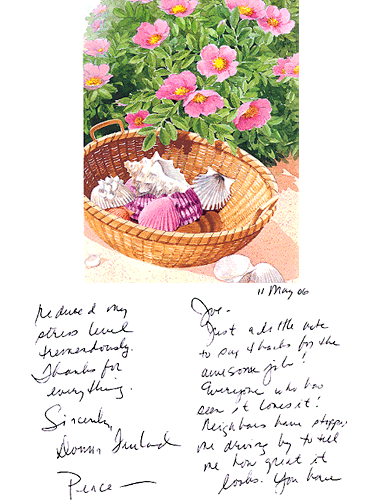 11 May 06
Joe-
Just a little note
to say thanks for the
awesome job!
Everyone who has
seen it loves it!
Neighbors have stopped
me driving by to tell
me how great it
looks. You have
reduced my
stress level
tremendously.
Thanks for
everything.
Sincerely,
Donna
Peace —